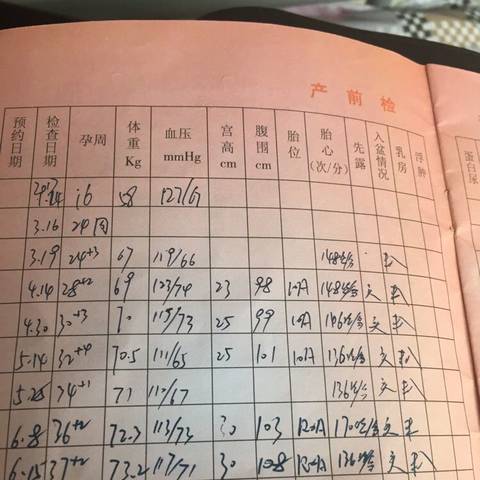 产前检
预约日期 检查日期 孕周 体重Kg 血压mmHg 宫高cm 腹围cm 胎位 胎心(次/分) 先露 入盆情况 乳房 浮肿 蛋白尿
16 58 127/
3.16 24周
3.19 24+3 67 119/66 148次/分
4.14 28+2 69 123/74 23 98 148次/分
4.30 30+3 70 115/73 25 99 146次/分
5.14 32+4 70.5 111/65 25 101 136次/分
5.25 34+1 71 112/67 136次/分
6.8 36+2 72.3 113/73 30 103 170次/分
6.15 37+2 73.2 117/71 30 108 136次/分